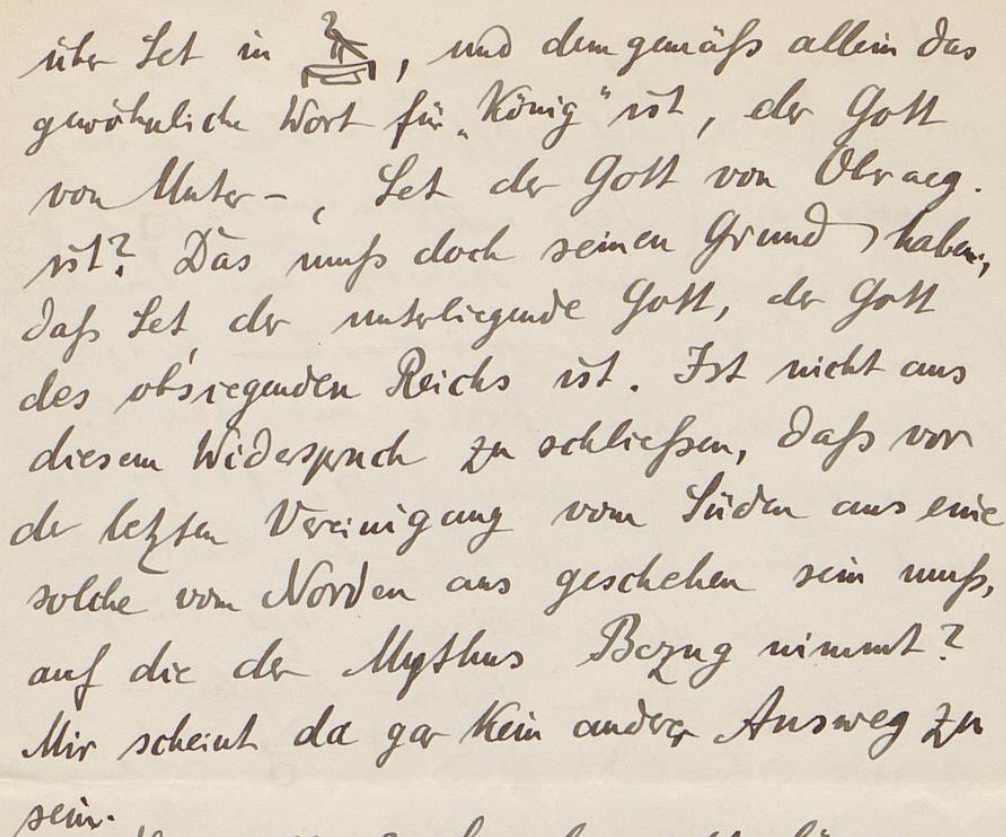 über Set in , und demgemäß allein das
gewöhnliche Wort für „König" ist, der Gott
von Unter-, Set der Gott von Oberaeg.
ist? Das muß doch seinen Grund haben,
daß Set, der unterliegende Gott, der Gott
des obsiegenden Reichs ist. Ist nicht aus
diesem Widerspruch zu schließen, daß vor
der letzten Vereinigung vom Süden aus eine
solche vom Norden aus geschehen sein muß,
auf die der Mythus Bezug nimmt?
Mir scheint da gar kein anderer Ausweg zu
sein.